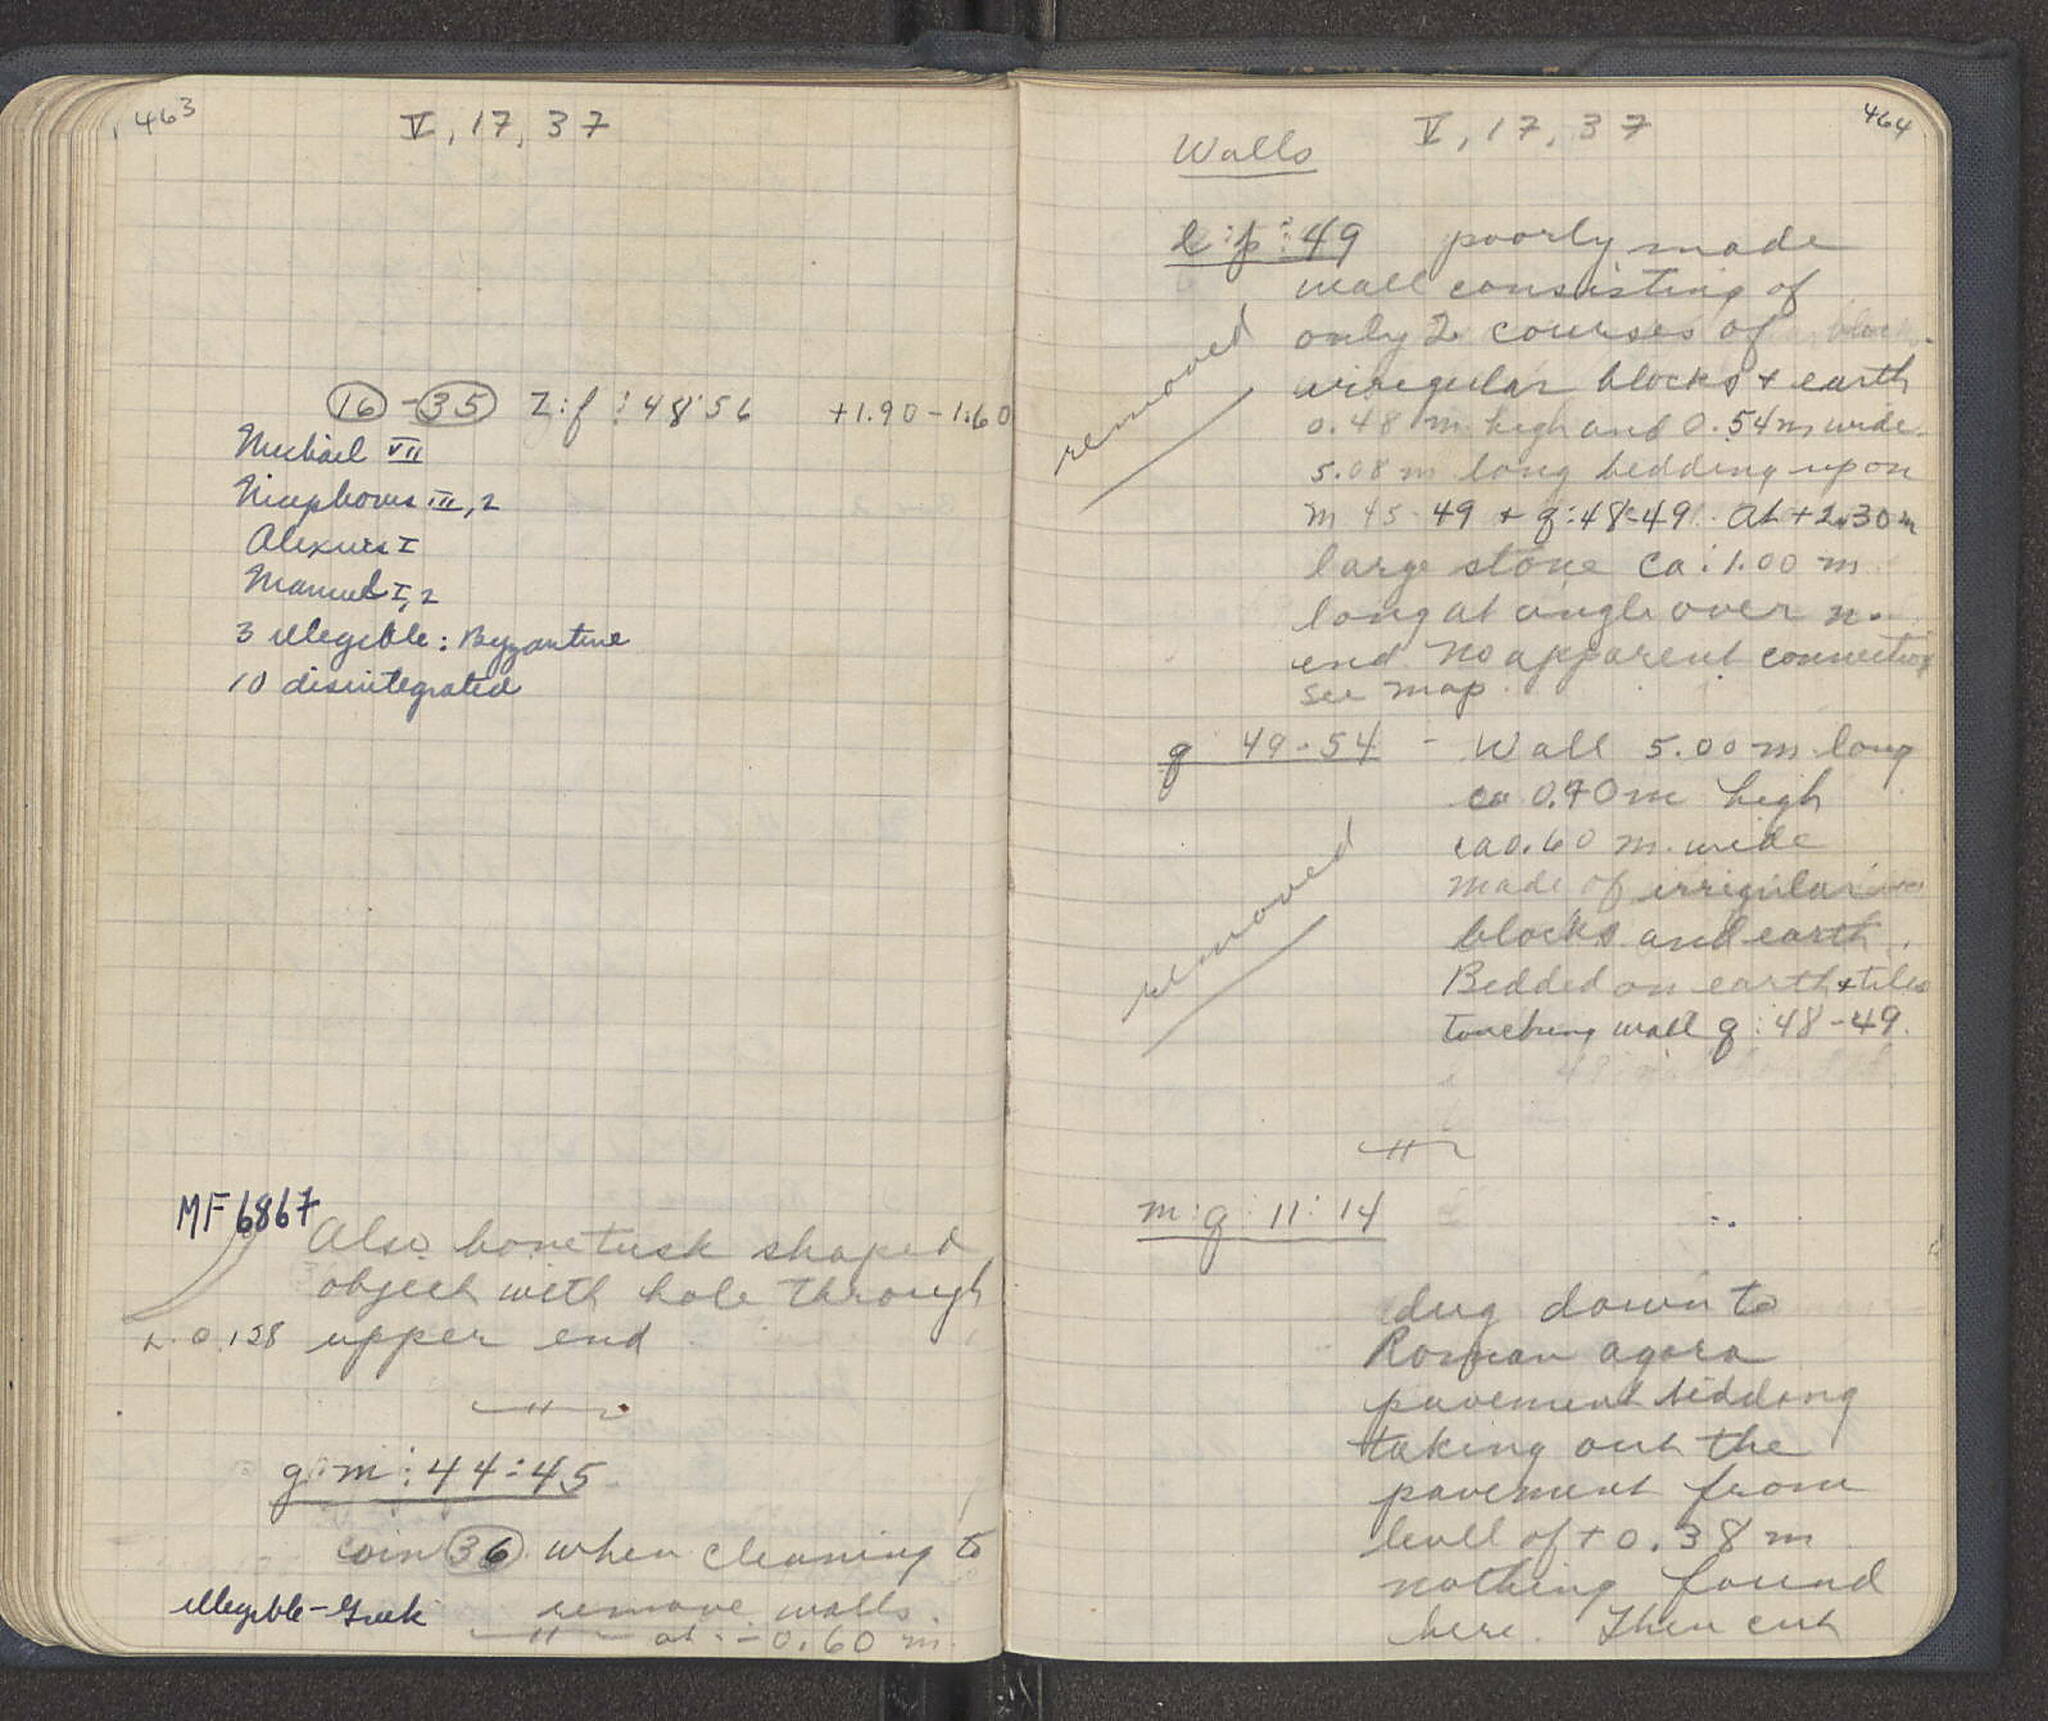 463
V, 17, 37
16 - 35 Z:f:48:56 +1.90-1.60
Michael VII
Nicephorus III, 2
Alexius I
Manuel I, 2
3 illegible: Byzantine
10 disintegrated
MF 6867
Also bone tusk shaped
object with hole through
L. 0.128 upper end
g:m:44:45
coin 36 when cleaning to
illegible-Greek remove walls.
at -0.60 m.
464
V, 17, 37
Walls
l:p:49 poorly made
wall consisting of
only 2 courses of
irregular blocks + earth
removed
0.48 m high and 0.54 m wide
5.08 m long bedding upon
m 45-49 + q:48-49. At +2.30 m
large stone ca. 1.00 m
long at angle over n.
end. No apparent connection
see map.
q 49-54 - Wall 5.00 m long
ca 0.90 m high
ca 0.60 m. wide
removed
made of irregular
blocks and earth.
Bedded on earth + tiles
touching wall q:48-49.
m:q:11:14
dug down to
Roman agora
pavement bedding
taking out the
pavement from
level of +0.38 m
nothing found
here. Then cut